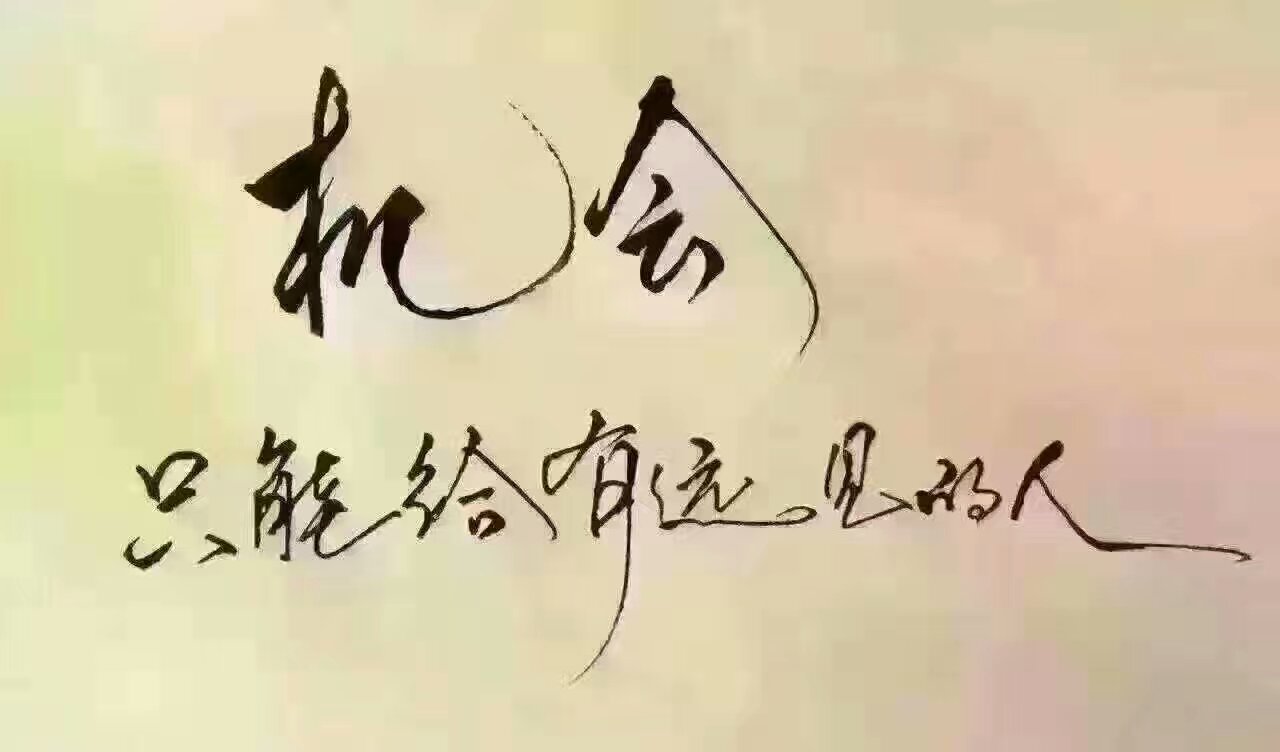 机会
只能给有远见的人